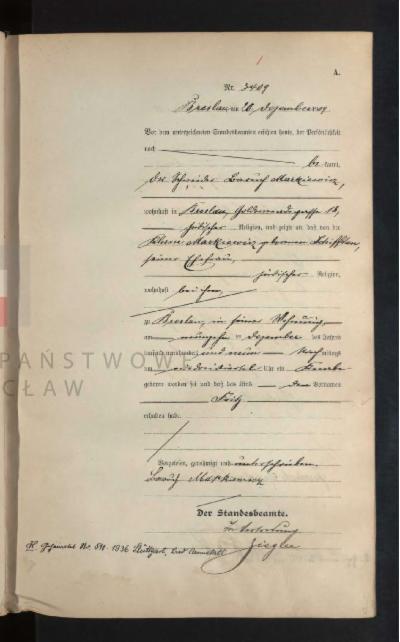 A.
Nr. 3409
Breslau, am 20. Dezember 1909
Vor dem unterzeichneten Standesbeamten erschien heute, der Persönlichkeit
nach
be kannt,
der Schneider Baruch Markiewicz,
wohnhaft in Breslau, Goldeneradegasse
jüdischer Religion, und zeigte an, daß von der
Markiewicz geborenen
seiner Ehefrau,
jüdischer Religion,
wohnhaft bei ihm,
zu Breslau, in seiner Wohnung,
am Dezember des Jahres
tausend neunhundert und neun Nachmittags
um Uhr ein Knabe
geboren worden sei und daß das Kind den Vornamen
Fritz
erhalten habe.
Vorgelesen, genehmigt und unterschrieben.
Baruch Markiewicz
Der Standesbeamte.
In Vertretung
Ziegler
H. Nr. 1936 Stuttgart, Bad Cannstatt
PAŃSTWOWE
CŁAW